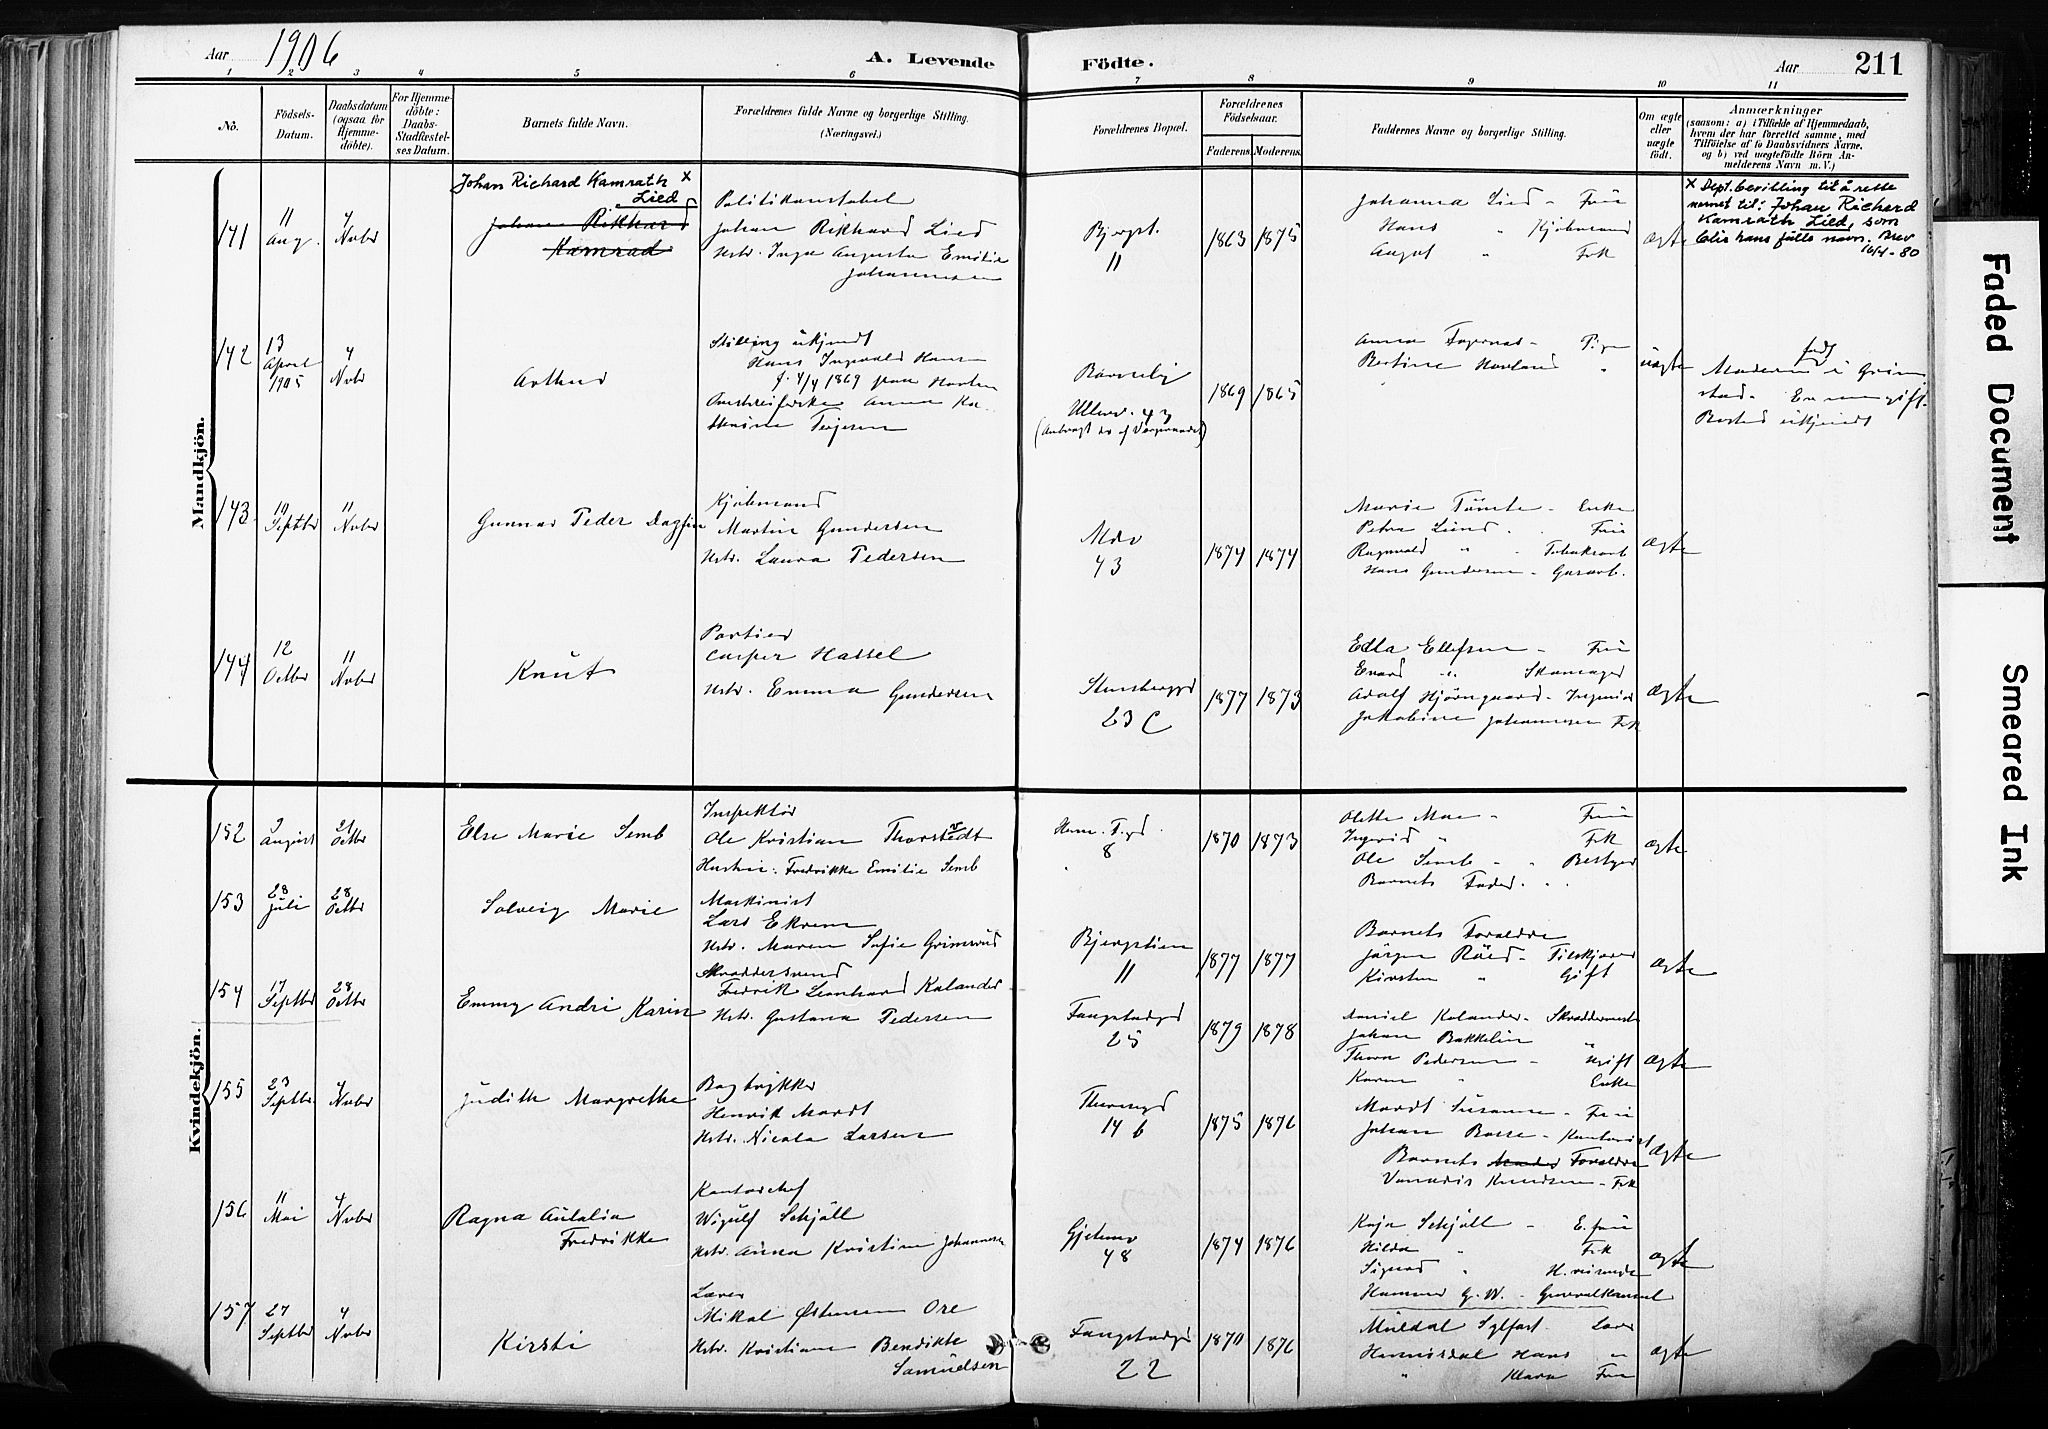 Aar 1906
A. Levende
Födte.
Aar
211
1 2 3 4 5 6 7 8 9 10 11
No.
Födsels-
Datum.
Daabsdatum
(ogsaa for
Hjemme-
döbte).
For Hjemme-
döbte:
Daabs-
Stadfæstel-
ses Datum.
Barnets fulde Navn.
Forældrenes fulde Navne og borgerlige Stilling.
(Næringsvei.)
Forældrenes Bopæl.
Forældrenes
Födselsaar.
Faderens.
Moderens.
Faddernes Navne og borgerlige Stilling.
Om ægte
eller
uægte
födt.
Anmærkninger
(saasom: a) i Tilfælde af Hjemmedaab,
hvem der har forrettet samme, med
Tilföielse af to Daabsvidners Navne,
og b) ved uægtefödte Börn An-
melderens Navn m. V.)
Mandkjön.
141
11
Aug.
4
Novbr
Johan Richard Kamrath x
Lied
Johan Rikhard
Kamrad
Politikonstabel
Johan Rikhard Lied
Hstr. Inga Augusta Emilie
Johannesen
Bjergst.
11
1863
1875
Johanna Lied - Frue
Hans " Kjöbmand
August " Frk
Ægte
x Dept. bevilling til å rette
navnet til: Johan Richard
Kamrath Lied, som
blir hans fulle navn. Brev
16/4-80
142
13
April
1905
4
Novbr
Arthur
Stilling ukjendt
Hans Ingvald Hansen
f. 4/4 1869 paa Horten
Anna Ka-
Terjesen
Ullerv. 43
1869
1865
Anna Fagernæs - Pige
Bertine Hovland "
uægte
Moderen født i Grim
stad. Er
Bosted ukjendt
143.
19
Septbr
11
Novbr
Gunnar Peder Dagfin
Kjöbmand
Martin Gundersen
Hstr. Laura Pedersen
43
1874
1874
Marie Tömte - Enke
Petra Lund - Frue
Ragnvald " - Tobaksarb.
Hans Gundersen - Gasarb.
Ægte
144
12
Octbr
11
Novbr
Knut
Portier
Casper Hassel
Hstr. Emma Gundersen
Stensberggd
23 C
1877
1873
Edla Ellefsen - Frue
Evard " Skomager
Adolf - Ingeniør
Jakobine Johannesen Frk
Ægte
Kvindekjön.
152
2
August
21
Octbr
Else Marie Semb
Inspektör
Ole Kristian Thorstvedt
Hustru: Fredrikke Emilie Semb
8
1870
1873
Olette Moe - Frue
Ingerid " Frk
Ole Semb - " Bestyrer
Barnets Fader. "
Ægte
153
28
Juli
28
Octbr
Solveig Marie
Maskinist
Lars Ekrem
Hstr. Maren Sofie Grimsrud
Bjergstien
11
1877
1877
Barnets Forældre
Jörgen Röed -
Kirsten " Gift
Ægte
154
17
Septbr
28
Octbr
Emmy Andri Karin
Skræddersvend
Fredrik Leonhard Kalander
Hstr. Gustava Pedersen
Fougstadgd
25
1879
1878
Daniel Kalander - Skræddermest
Johan Bakkelin "
Thora Pedersen - Ugift
Karen " Enke
Ægte
155
23
Septbr
4
Novbr
Judith Margrethe
Bogtrykker
Henrik Mardt
Hstr. Nicola Larsen
Theresesgd
14 b
1875
1876
Mardt Susanne - Frue
Johan Basse - Kontorist
Barnets Moder Forældre
Vanadis Knudsen - Frk
Ægte
156
11
Mai
4
Novbr
Ragna Eulalia
Fredrikke
Kontorchef
Wigulf Schjöll
Hstr. Anna Kristine Johannesen
Gjetemv
48
1874
1876
Kaja Schjöll - E. frue
Hilda " Frk
Sigurd " H. reisende
Hammer G. W. - Generalkonsul
Ægte
157
27
Septbr
4
Novbr
Kirsti
Lærer
Mikal Østensen Ore
Hstr. Kristiane Bendikte
Samuelsen
Fougstadgd
22
1870
1876
Muldal Sylfest Lærer
Hans "
" Klara Frue
Ægte
Faded Document
Smeared Ink